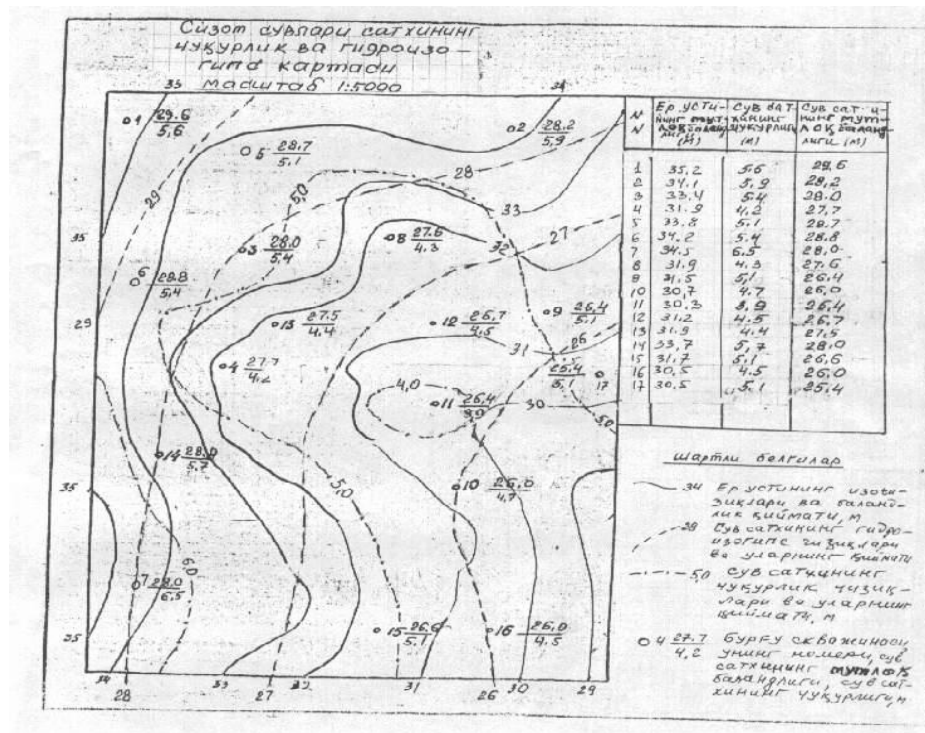 Сизот сувлари сатхининг
чуқурлик ва гидроизо-
гипс картаси
масштаб 1:5000
33
34
1 29.6
5,6
2 28.2
5,9
5 28.7
5.1
29
5,0
28
33
35
3 28.0
5.4
8 27.6
4.3
27
6 28.8
5,4
29
13 27.5
4.4
12 26,7
4,5
9 26.4
5.1
31
26
4 27.7
4,2
25.4
5,1
17
4,0
11 26.4
3,9
30
5,0
14 28,0
5.7
10 26,0
4.7
35
5,0
7 28.0
6.5
6,0
15 26.6
5.1
16 26,0
4,5
34
28
33
27
32
31
26
30
29
N
N
Ер усти-
нинг мут-
лоқ баланд-
лиги (м)
Сув сат-
хининг
чуқурлиги
(м)
Сув сат-и-
нинг мут-
лоқ баланд-
лиги (м)
1 35,2 5,6 29,6
2 34,1 5,9 28,2
3 33,4 5,4 28.0
4 31.9 4,2 27,7
5 33,8 5,1 28.7
6 34.2 5.4 28.8
7 34,5 6.5 28,0
8 31,9 4,3 27.6
9 31,5 5,1 26.4
10 30,7 4,7 26,0
11 30,3 3,9 26,4
12 31,2 4,5 26,7
13 31.9 4.4 27,5
14 33,7 5,7 28,0
15 31,7 5,1 26,6
16 30,5 4.5 26,0
17 30,5 5,1 25.4
Шартли белгилар
34 Ер устининг изоги-
зиқлари ва баланд-
лик қиймати, м
28 Сув сатхининг гидро-
изогипс чизиқлари
ва уларнинг қиймати
5,0 Сув сатхининг
чуқурлик чизиқ-
лари ва уларнинг
қиймати, м
4 27.7
4,2
Бурғу скважинаси
унинг номери, сув
сатхининг мутлоқ
баландлиги, сув сат-
хининг чуқурлиги, м